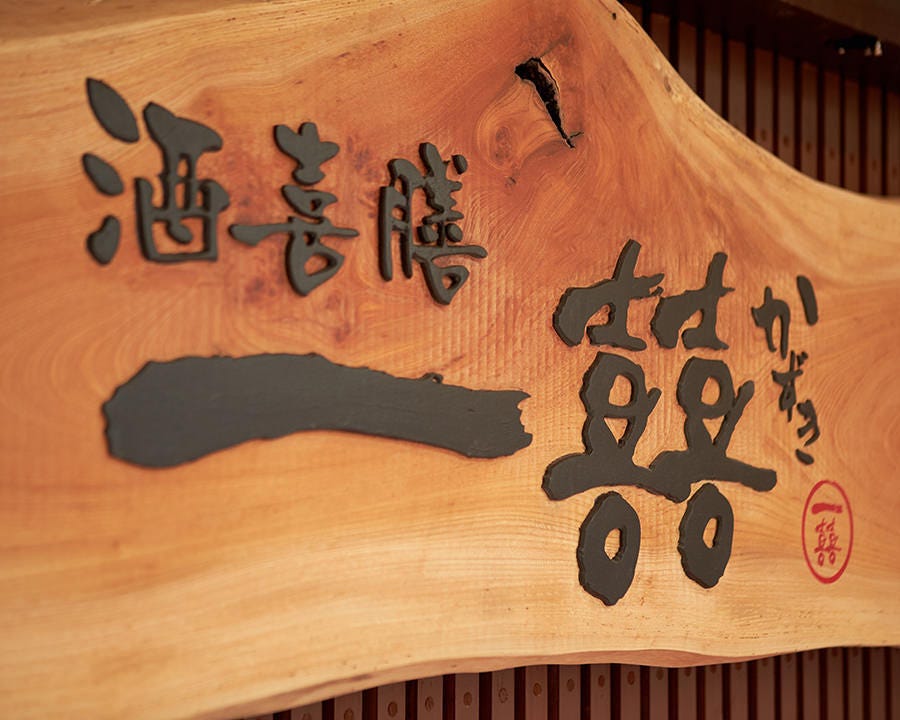 酒喜膳
一囍
かずき
一囍